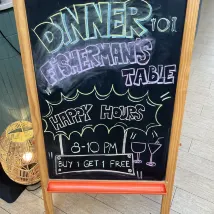 DINNER 101
FISHERMAN'S
TABLE
HAPPY HOURS
8-10 PM
BUY 1 GET 1 FREE